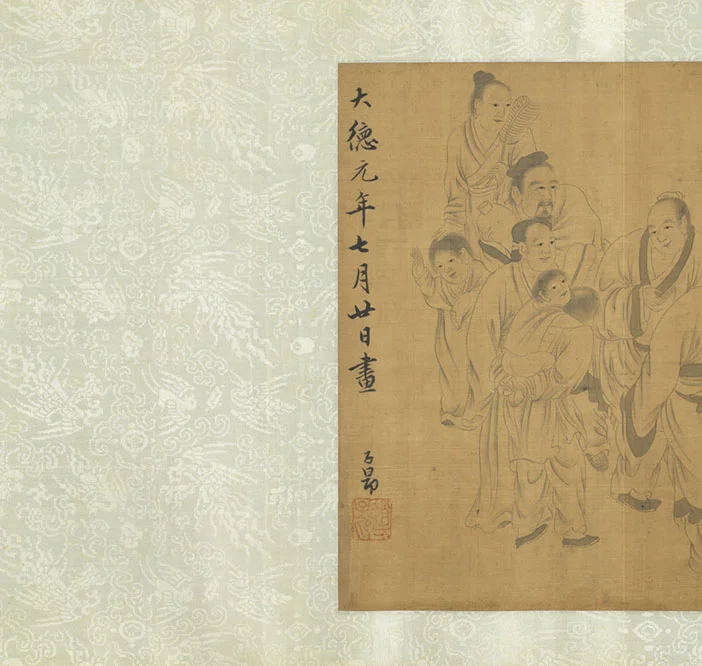 大德元年七月廿日畫
子昂